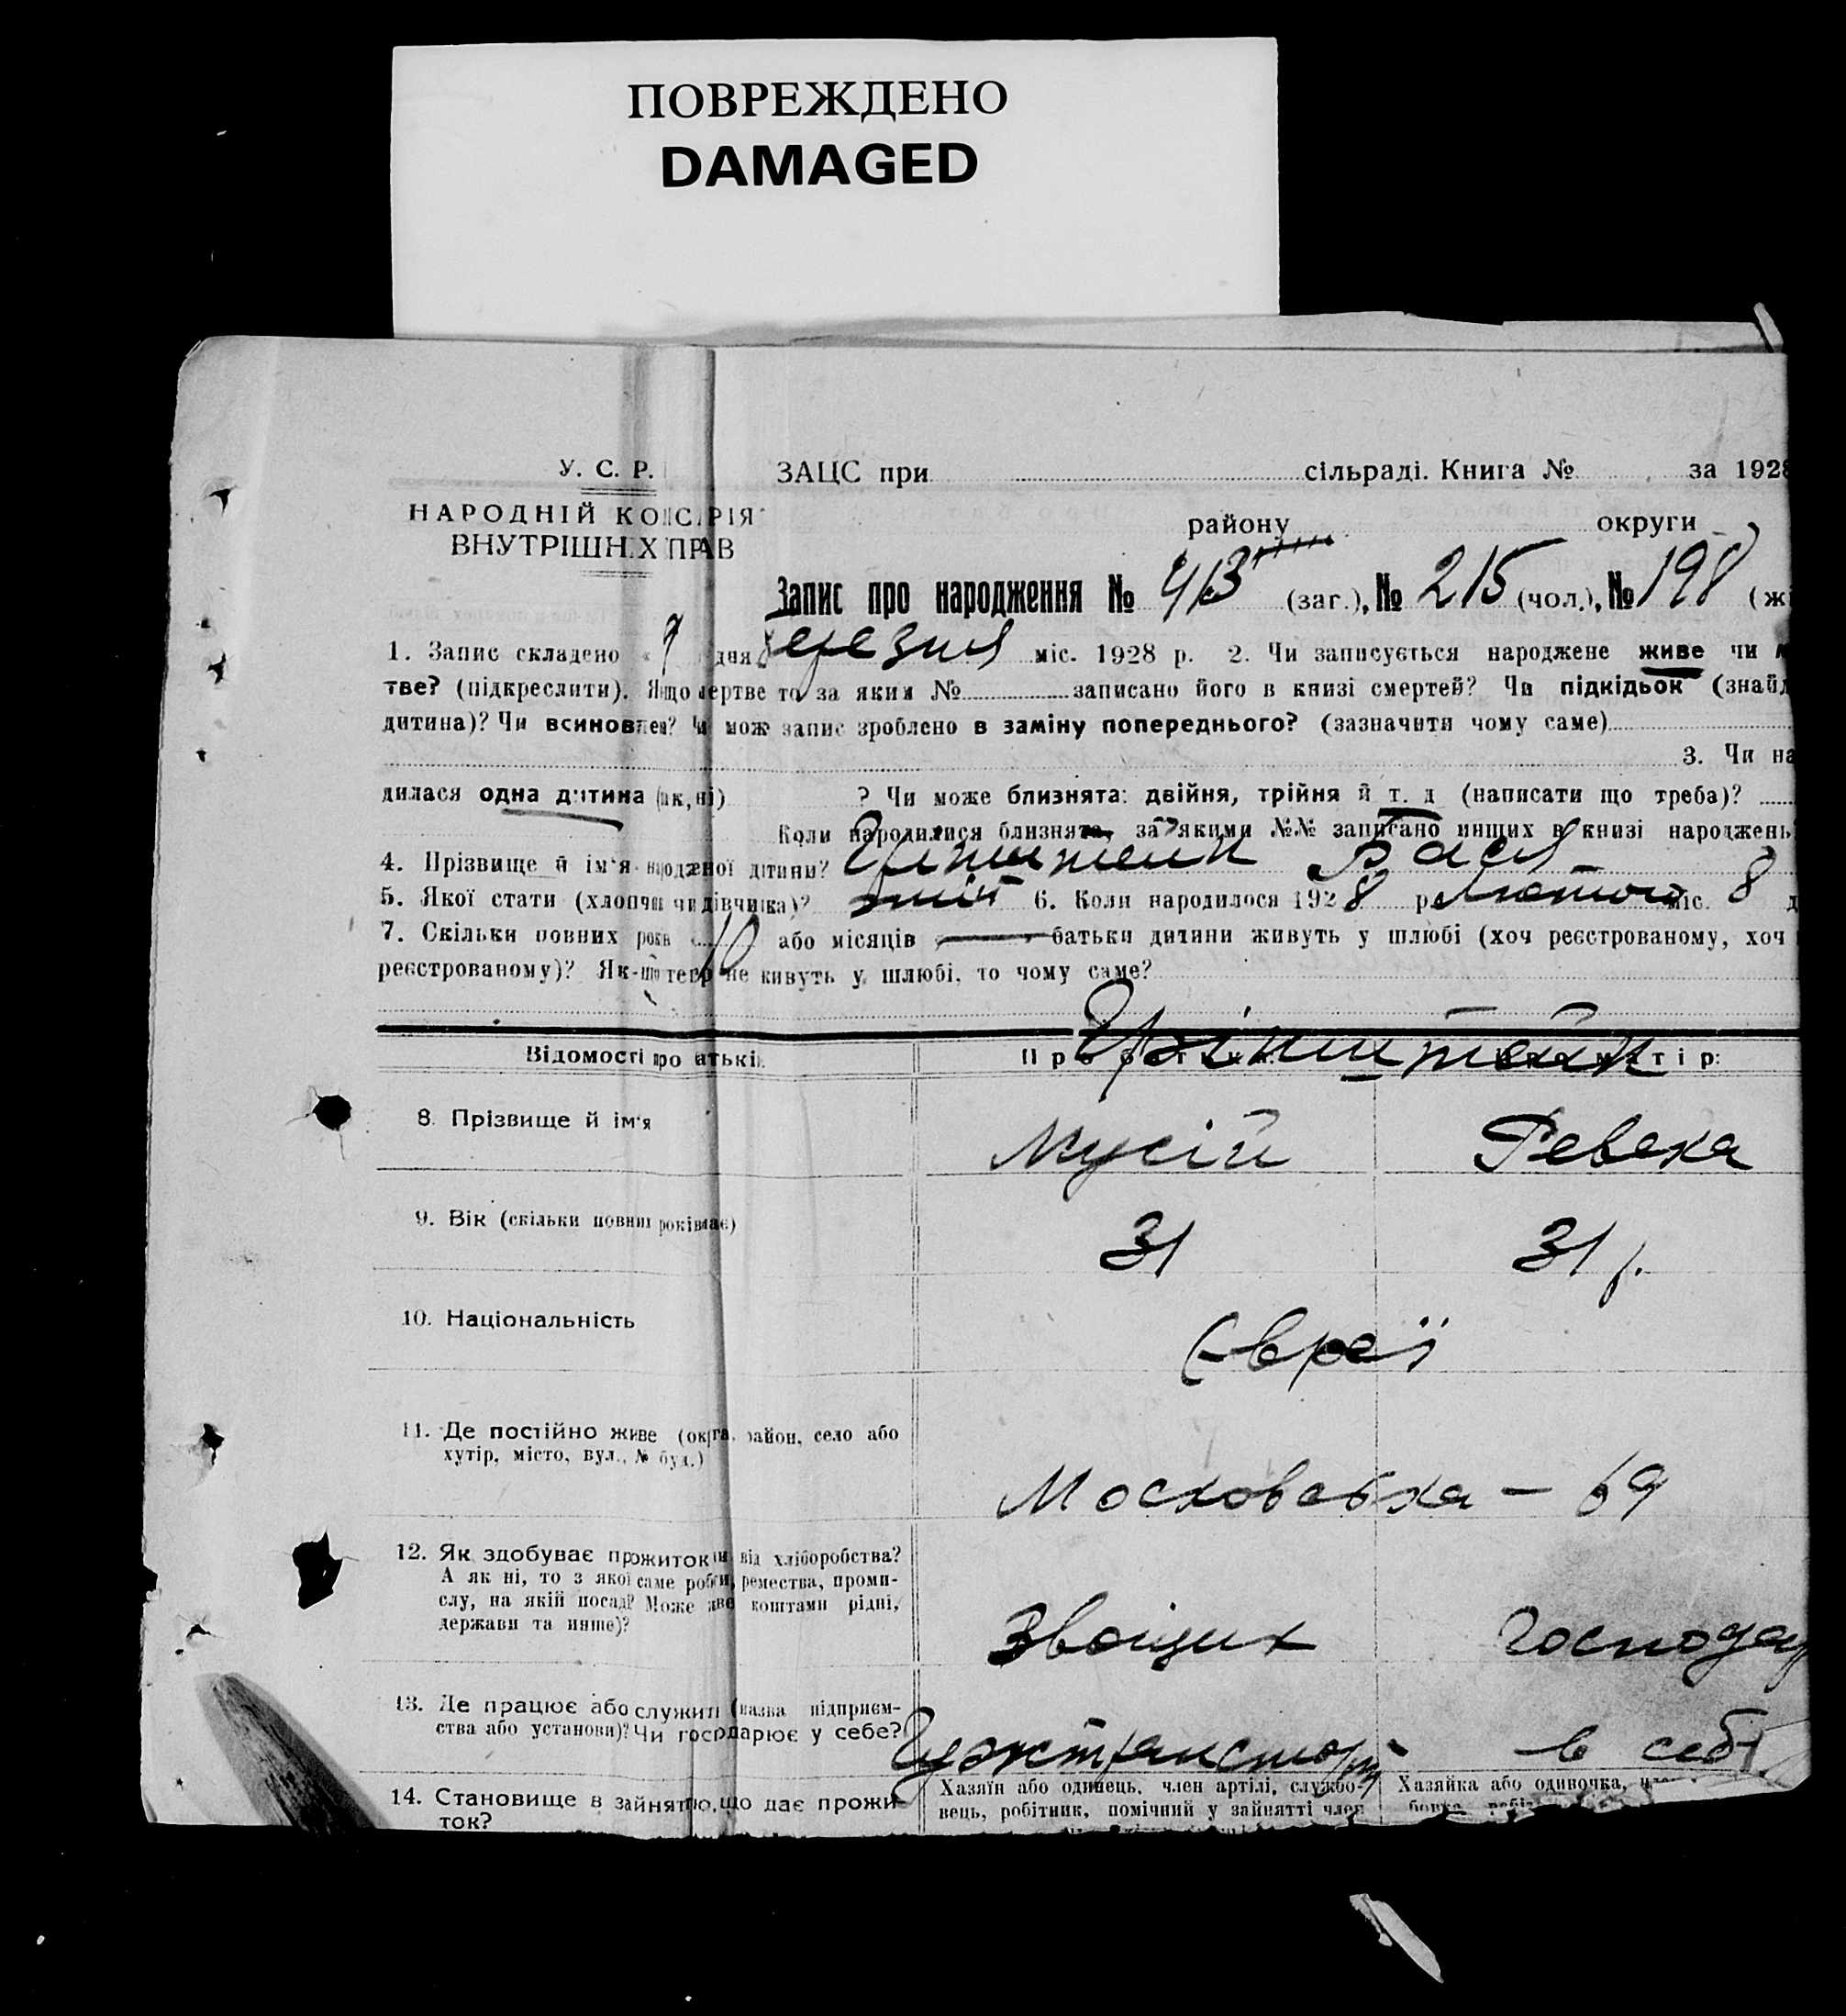 ПОВРЕЖДЕНО
DAMAGED
У. С. Р. ЗАЦС при сільраді. Книга № за 1928
НАРОДНІЙ
ВНУТРІШН Х ПРАВ
району округи
Запис про народження № 413 (заг.), № 215 (чол.), № 198
1. Запис складено « 9 дня березня міс. 1928 р. 2. Чи записується народжене живе чи
тве? (підкреслити). то за яким № записано його в книзі смертей? Чи підкідьок
дитина)? Чи запис зроблено в заміну попереднього? (зазначити чому саме)
3. Чи на
дилася одна дитина ? Чи може близнята: двійня, трійня й т. д (написати що треба)?
Коли народилися близнята, за якими №№ записано инших в книзі народжень
4. Прізвище й ім'я дітини? Бася
5. Якої стати (хлопчи чи дівчинка)? 6. Коли народилося 1928 р. Лютого міс. 8
7. Скільки повних років 10 або місяців батьки дитини живуть у шлюбі (хоч реєстрованому, хоч
реєстрованому)? не живуть у шлюбі, то чому саме?
Грінштейн
Відомості про
8. Прізвище й ім'я Мусій Ревека
9. Вік (скільки повних років має) 31 31 р.
10. Національність Євреї
11. Де постійно живе (округа, район, село або
хутір, місто, вул., № буд.)
Московська – 69
12. Як здобуває прожиток від хліборобства?
А як ні, то з якої саме роботи, ремества, проми-
слу, на якій посаді? Може коштами рідні,
держави та инше)?
Звощик Господар
13. Де працює або служить (назва підприєм-
ства або установи)? Чи господарює у себе?
Гужтранспорт в себі
14. Становище в зайнятю, що дає прожи-
ток?
Хазяїн або одинець, член артілі, службо-
вець, робітник, помічний у зайнятті член
Хазяйка або одиночка,